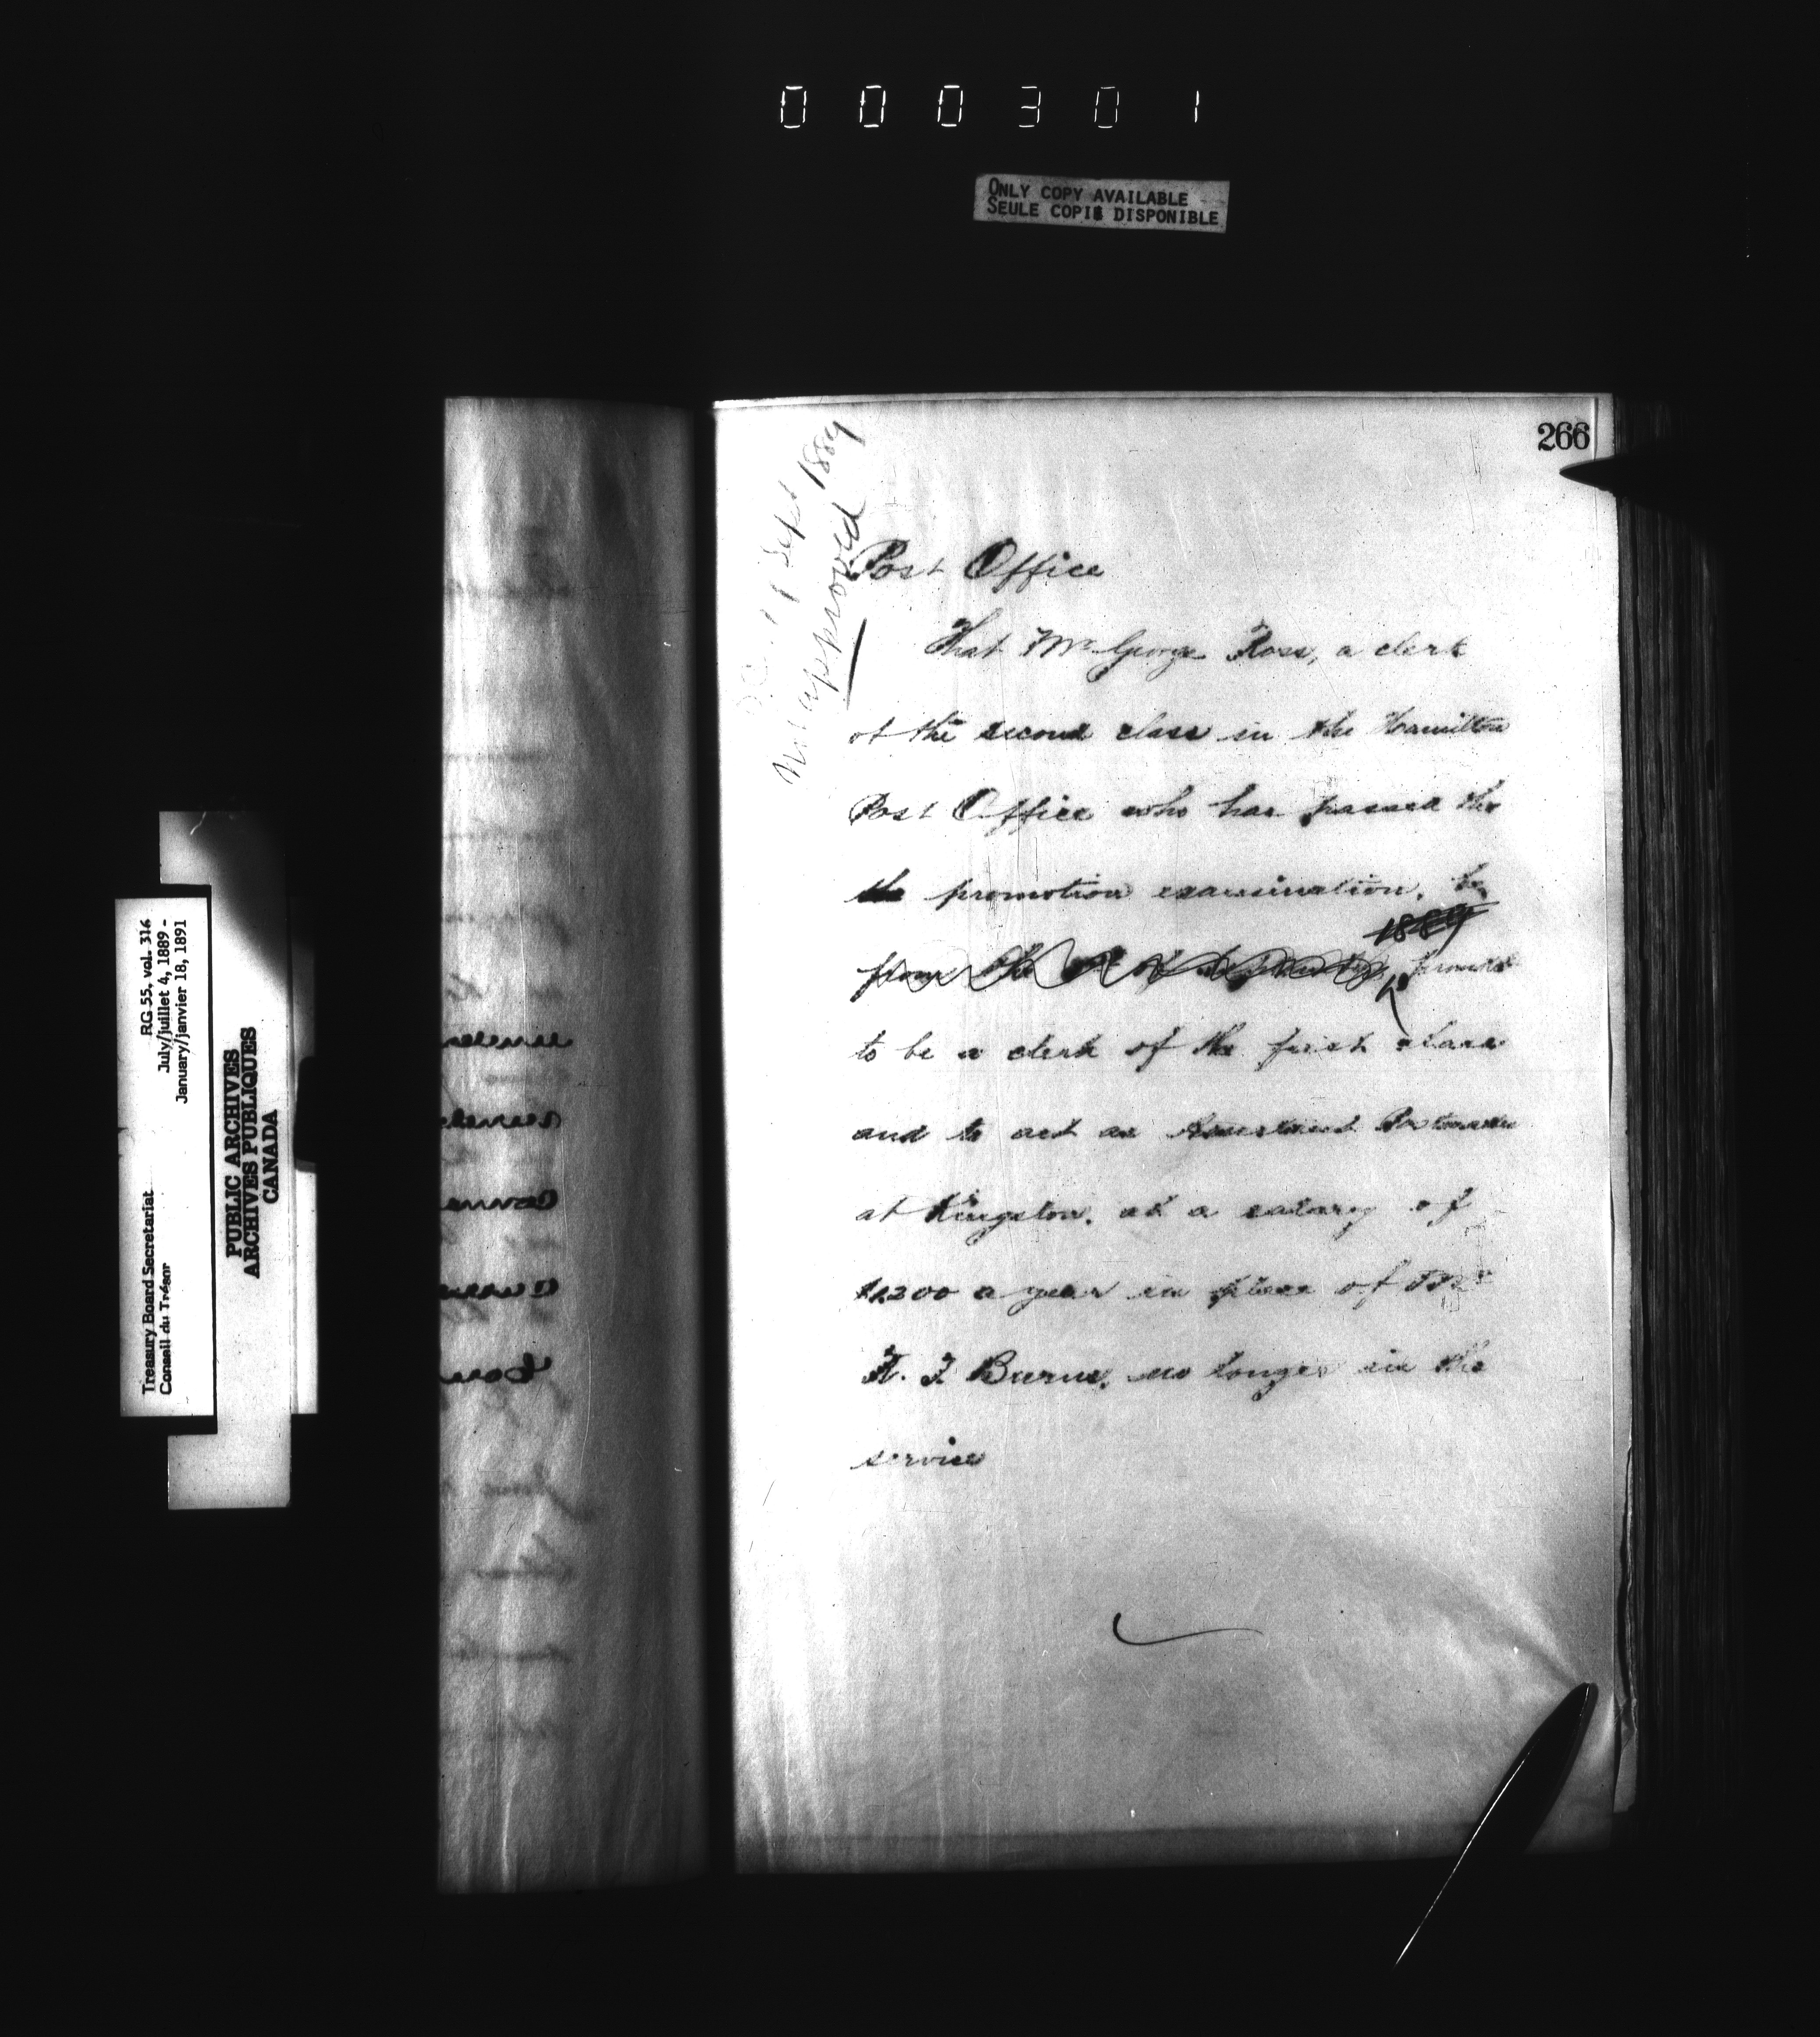 000301
ONLY COPY AVAILABLE
SEULE COPIE DISPONIBLE
266
Sept 1889
Not approved
Post Office
That Mr George Ross, a clerk
of the second class in the Hamilton
Post Office who has passed the
the promotion examination, be
1889
from the
to be a clerk of the first class
and to act as Assistant Postmaster
at Kingston, at a salary of
$1,200 a year in place of Mr
Burns, no longer in the
service
Treasury Board Secretariat RG 55, vol. 316
Conseil du Trésor July/juillet 4, 1889 -
January/janvier 18, 1891
PUBLIC ARCHIVES
ARCHIVES PUBLIQUES
CANADA